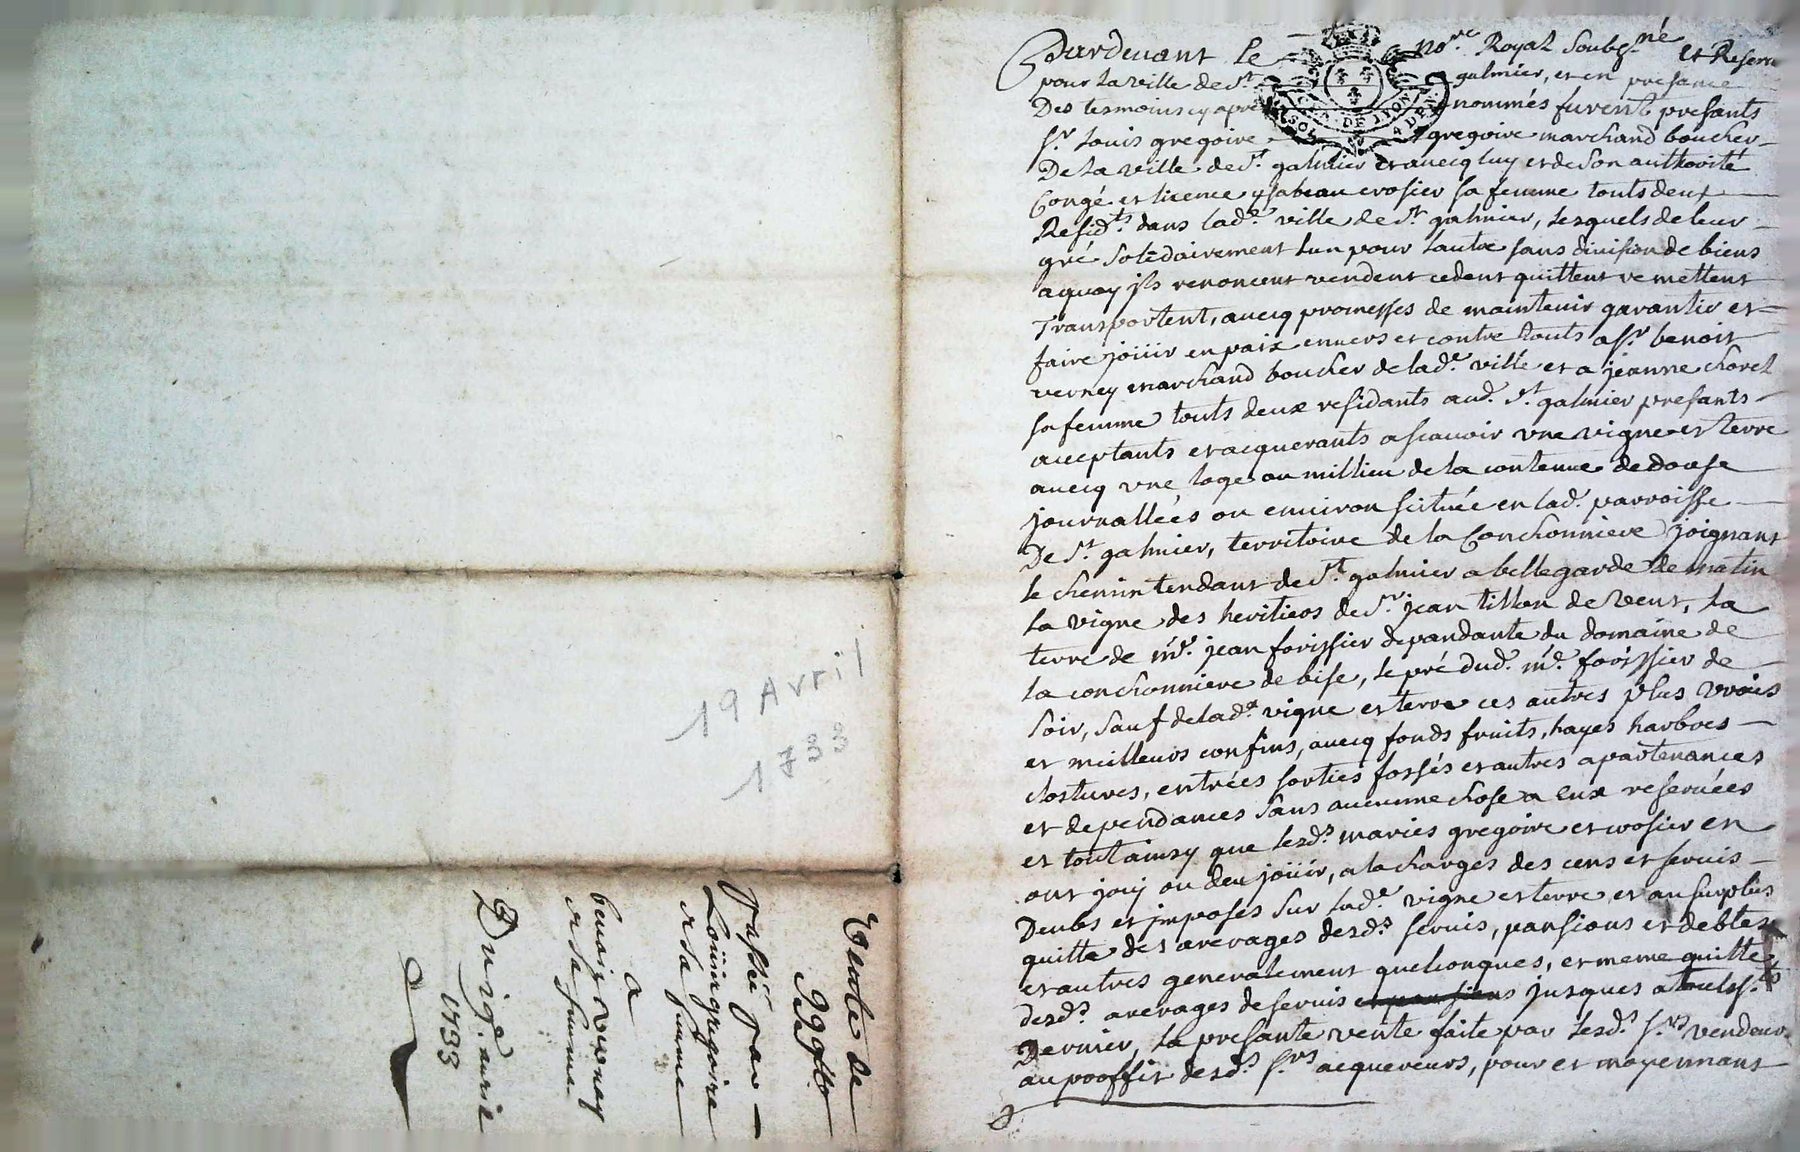 19 Avril
1733
Vente de
992ₗₜ
Passée par
Loüis gregoire
et sa femme
a
benoit verney
et sa femme
Du 19e. avril
1733
Pardevant le no.re Royal soubsg.né et Reservé
pour la ville de St. galmier, et en presance
Des tesmoins cy apres nommés furent presants
sr. Louis gregoire gregoire marchand boucher
De la ville de St. galmier et avecq luy et de son authorité
Congé et licence ysabeau crosier sa femme touts deux
Resid.ts dans lad.e ville de St galmier, lesquels de leur
gré solidairement l'un pour lautre sans division de biens
a quoy jls renoncent vendent cedent quittent remettent
Transportent, avecq promesses de maintenir garantir et
faire joüir en paix envers et contre touts a sr. benoit
verney marchand boucher de lad.e ville et a jeanne chorel
sa femme touts deux residants aud. St. galmier presants
acceptants et acquerants ascavoir une vigne et terre
avecq une loge au millieu de la contenue de douse
journallées ou environ scituée en lad. parroisse
De St galmier, territoire de la Conchonniere joignant
le chemin tendant de St. galmier a bellegarde de matin
la vigne des heritiers de sr. jean tillon de vent, la
terre de mr. jean forissier depandante du domaine de
la conchonniere de bise, le pré dud. mr. forissier de
soir, sauf de lad.e vigne et terre ces autres plus vrais
et meilleurs confins, avecq fonds fruits, hayes harbres
clostures, entrées sorties fossés et autres apartenances
et dependances sans aucunne chose a eux reservées
et tout ainsy que lesd.s mariés gregoire et crosier en
ont jouy ou deu joüir, a la charges des cens et servis
Deubs et jmposés sur lad.e vigne et terre et au surplus
quitte des arerages desd.s servis, pansions et debtes
et autres generalement quelconques, et meme quitte
desd.s arerages de servis et pansions jusques a toutss.ts
Dernier, la presante vente faite par lesd.s srs vendeurs
au proffit desd.s srs acquereurs, pour et moyennant